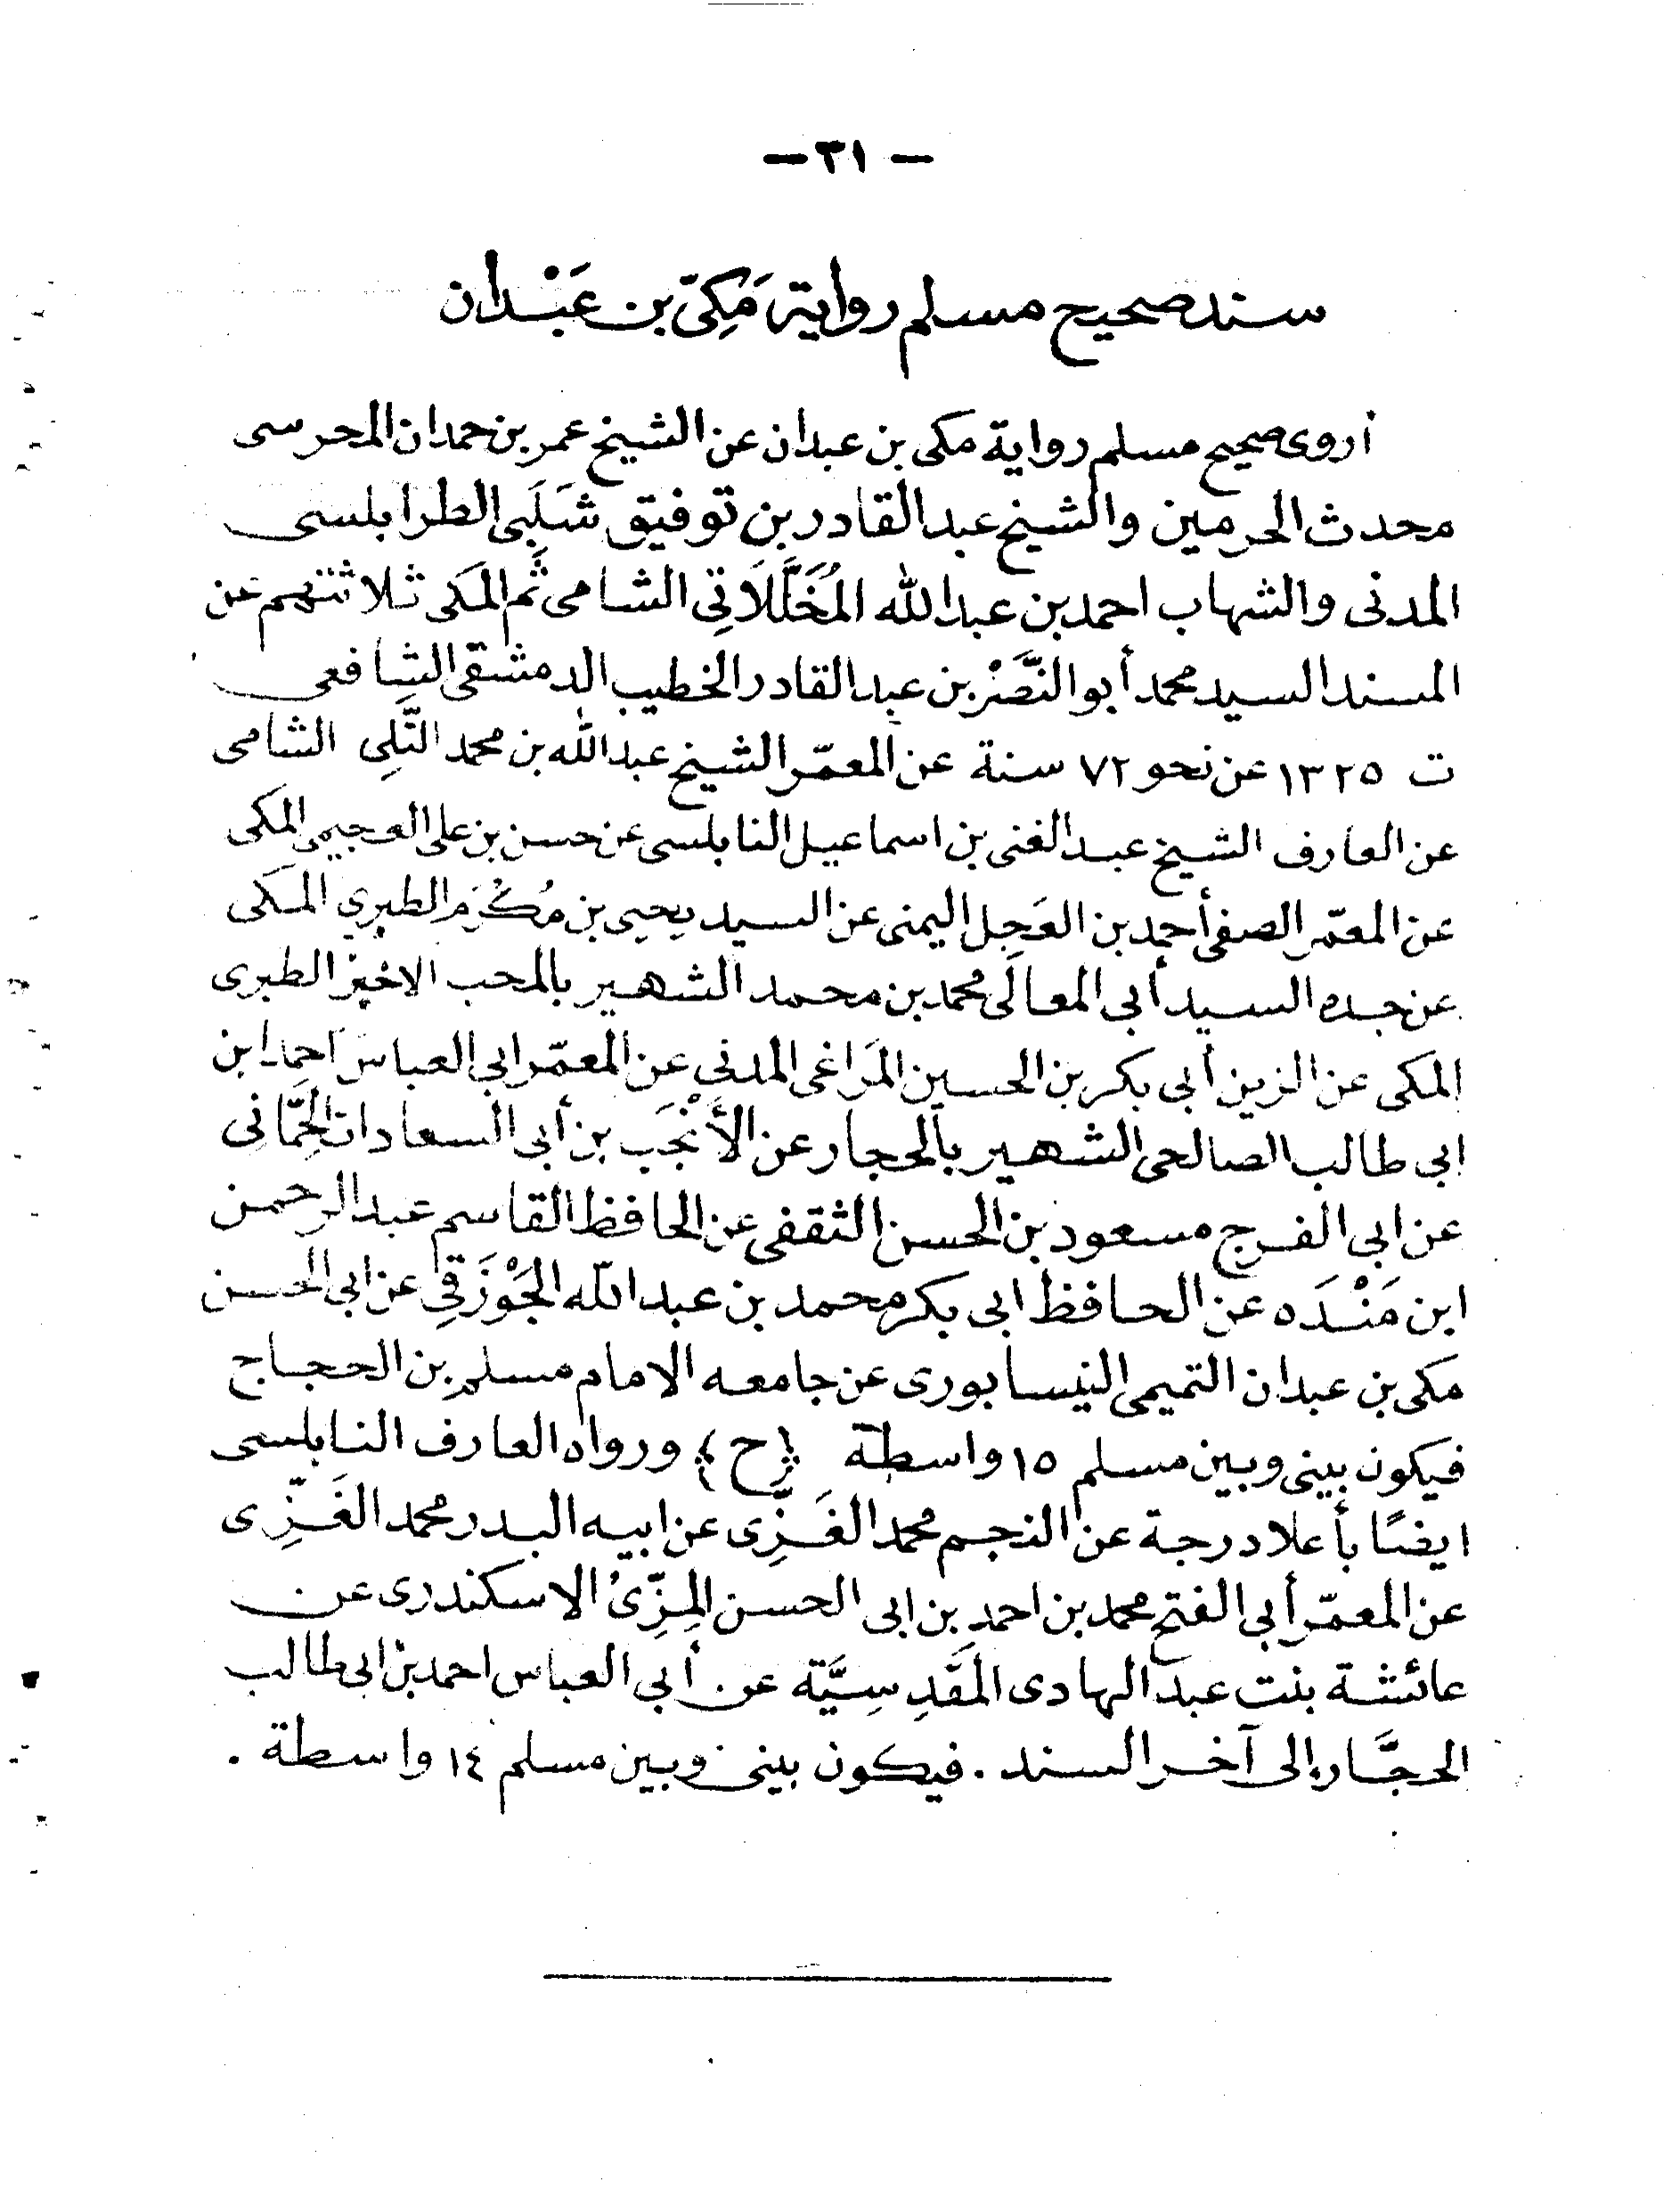 — ٣١ —
سند صحيح مسلم رواية مَكِيّ بن عَبْدان
أروى صحيح مسلم رواية مكى بن عبدان عن الشيخ عمر بن حمدان المحرسى
محدث الحرمين والشيخ عبد القادر بن توفيق شَلَبى الطرابلسى
المدنى والشهاب احمد بن عبد الله المُخَلَّلاَتِى الشامى ثُم المكى ثلاثتهم عن
المسند السيد محمد أبو النَّصْر بن عبد القادر الخطيب الدمشقى الشافعى
ت ١٣٢٥ عن نحو ٧٢ سنة عن المعمّر الشيخ عبد الله بن محمد التَّلِى الشامى
عن العارف الشيخ عبد الغنى بن اسماعيل النابلسى عن حسن بن على العجيمى المكى
عن المعمّر الصفى أحمد بن العَجِل اليمنى عن السيد يحيى بن مُكْرَم الطبري المكى
عن جده السيد أبى المعالى محمد بن محمد الشهير بالمحب الاخير الطبرى
المكى عن الزين أبى بكر بن الحسين المَرَاغى المدنى عن المعمّر ابى العباس احمد ابن
ابى طالب الصالحى الشهير بالحجار عن الأَنْجَب بن أبى السعادات الحَمَّانِى
عن ابى الفرج مسعود بن الحسن الثقفى عن الحافظ القاسم عبد الرحمن
ابن مَنْدَه عن الحافظ ابى بكر محمد بن عبد الله الجَوْزَقِى عن ابى الحسن
مكى بن عبدان التميمى النيسابورى عن جامعه الامام مسلم بن الحجاج
فيكون بينى وبين مسلم ١٥ واسطة {ح} ورواه العارف النابلسى
ايضًا بأعلا درجة عن النجم محمد الغَزِّى عن ابيه البدر محمد الغَزِّى
عن المعمّر أبى الفتح محمد بن احمد بن ابى الحسن المِزِّىُ الاسكندرى عن
عائشة بنت عبد الهادى المَقْدِسِيَّة عن أبى العباس احمد بن ابى طالب
الحجَّار إلى آخر السند . فيكون بينى وبين مسلم ١٤ واسطة .